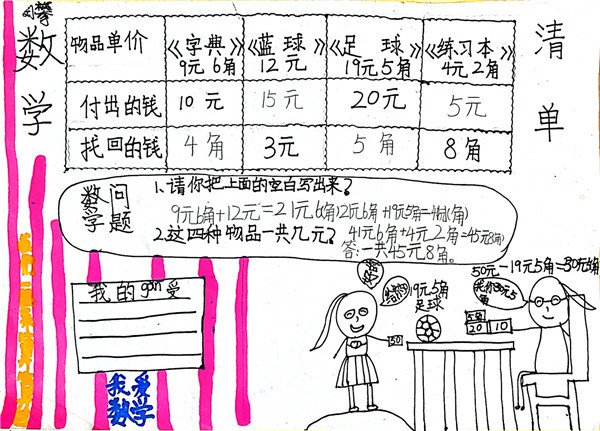 数学
清单
物品单价 《字典》 《蓝球》 《足球》 《练习本》
9元6角 12元 19元5角 4元2角
付出的钱 10元 15元 20元 5元
找回的钱 4角 3元 5角 8角
数学问题
1.请你把上面的空白写出来?
9元6角+12元=21元6角
2.这四种物品一共几元?
41元6角+4元2角=45元8角
答:一共45元8角。
我的gǎn受
19元5角
足球
50
50元-19元5角=30元5角
5角
20 10
我爱
数学